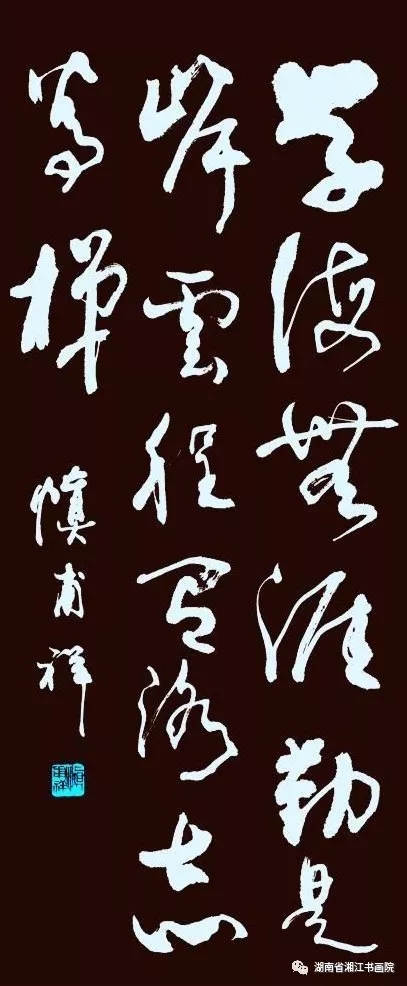 学海無涯勤是
岸雲程有路志
為梯
慎甫祥
湖南省湘江书画院